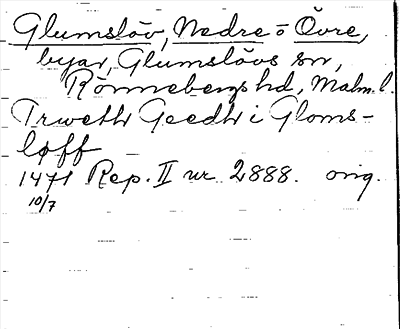 Glumslöv, Nedre o Övre,
byar, Glumslövs sn,
Rönnebergs hd, Malm. l.
Trweth Geedh i Gloms-
løff
1471 Rep. II nr 2888. orig.
10/7